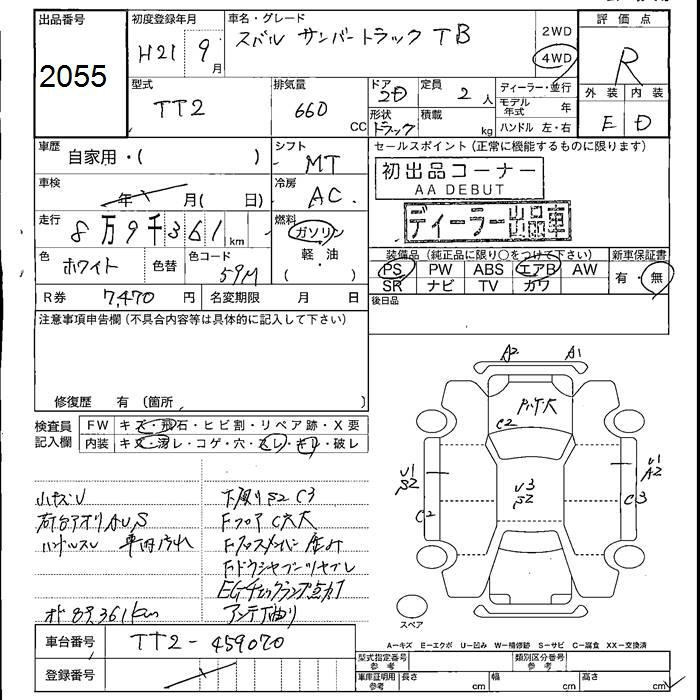 出品番号
2055
初度登録年月
H21 9月
車名・グレード
スバル サンバートラック TB
2WD
4WD
評価点
R
外装 内装
E D
型式
TT2
排気量
660 CC
ドア
2D
形状
トラック
定員
2人
積載
kg
ディーラー・並行
モデル年式 年
ハンドル 左・右
車歴
自家用・( )
シフト
MT
車検
年 月( 日)
冷房
AC
走行
8万9千361km
燃料
ガソリン
軽・油
( )
色
ホワイト
色替
色コード
59M
R券 7,470 円
名変期限 月 日
セールスポイント(正常に機能するものに限ります)
初出品コーナー
AA DEBUT
ディーラー出品車
装備品(純正品に限り○をつけて下さい)
PS PW ABS エアB AW
SR ナビ TV カワ
新車保証書
有・無
後日品
注意事項申告欄(不具合内容等は具体的に記入して下さい)
修復歴 有(箇所 )
検査員記入欄
FW キズ・飛石・ヒビ割・リペア跡・X要
内装 キズ・汚レ・コゲ・穴・スレ・キレ・破レ
小キズU
荷台アオリAUS
下廻りS2 C3
Fフロア C穴大
Fクロスメンバー
Fドウシャブーツヤブレ
EGチェックランプ点灯
アンテナ曲り
オド 89,361km
A2 A1
C2
U1
S2
C2
U3
S2
U1
A2
C3
スペア
A-キズ E-エクボ U-凹み W-補修跡 S-サビ C-腐食 XX-交換済
車台番号
TT2-459070
登録番号
型式指定番号
参考
類別区分番号
参考
車庫証明用
参考
長さ cm 幅 cm 高さ cm